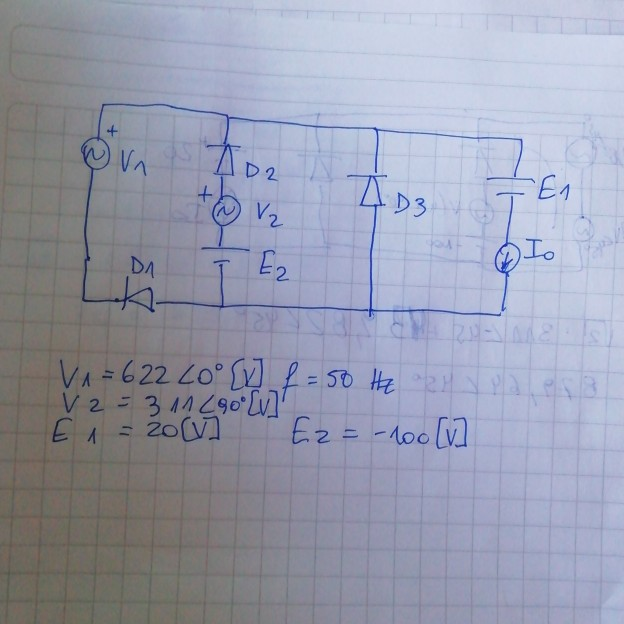 +
V1
D2
+
V2
E2
D3
E1
I0
D1
V1 = 622∠0° [V] f = 50 Hz
V2 = 311∠90° [V]
E1 = 20 [V] E2 = -100 [V]